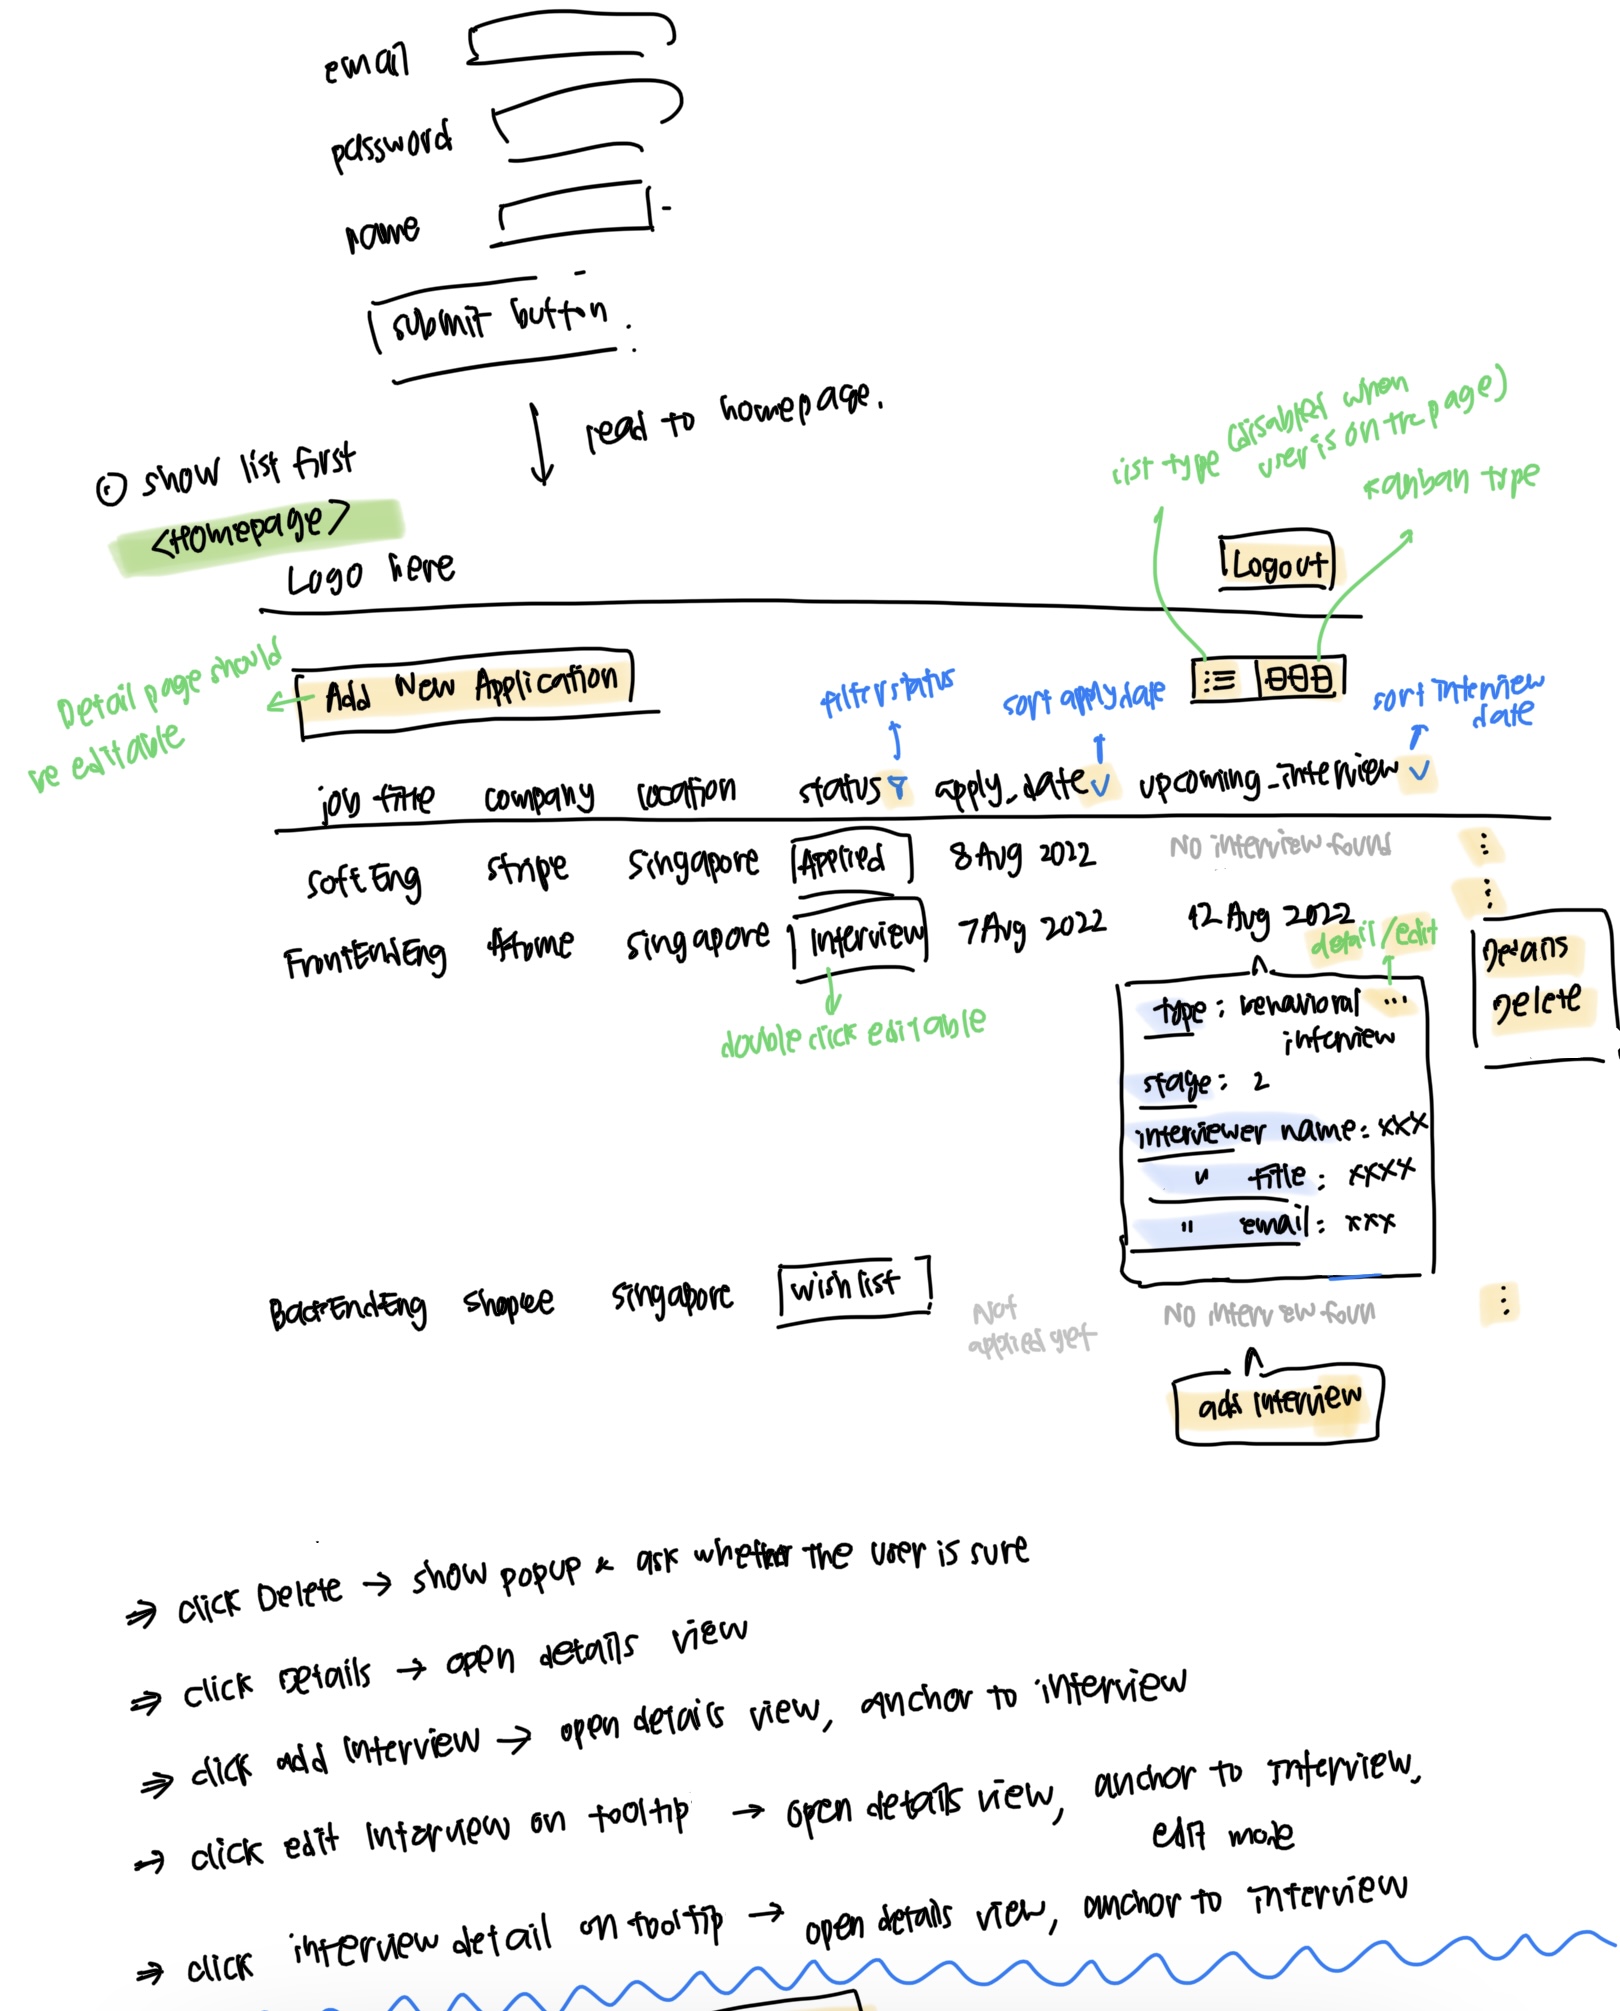 email
password
name
submit button
lead to homepage.
show list first
<Homepage>
Logo here
Logout
list type (disabled when
user is on the page)
kanban type
Detail page should
be editable
Add New Application
filter status
sort apply date
sort interview
date
job title company location status apply_date upcoming_interview
SoftEng stripe singapore Applied 8 Aug 2022 No interview found ...
...
FrontEndEng Atome singapore Interview 7 Aug 2022 12 Aug 2022
detail/edit
Details
Delete
double click editable
type : behavioral ...
interview
stage : 2
interviewer name : xxx
" title : xxxx
" email : xxx
BackEndEng shopee singapore wishlist Not
applied yet
No interview foun
...
add interview
⇒ click Delete → show popup & ask whether the user is sure
⇒ click Details → open details view
⇒ click add interview → open details view, anchor to interview
→ click edit interview on tooltip → open details view, anchor to interview,
edit mode
⇒ click interview detail on tooltip → open details view, anchor to interview